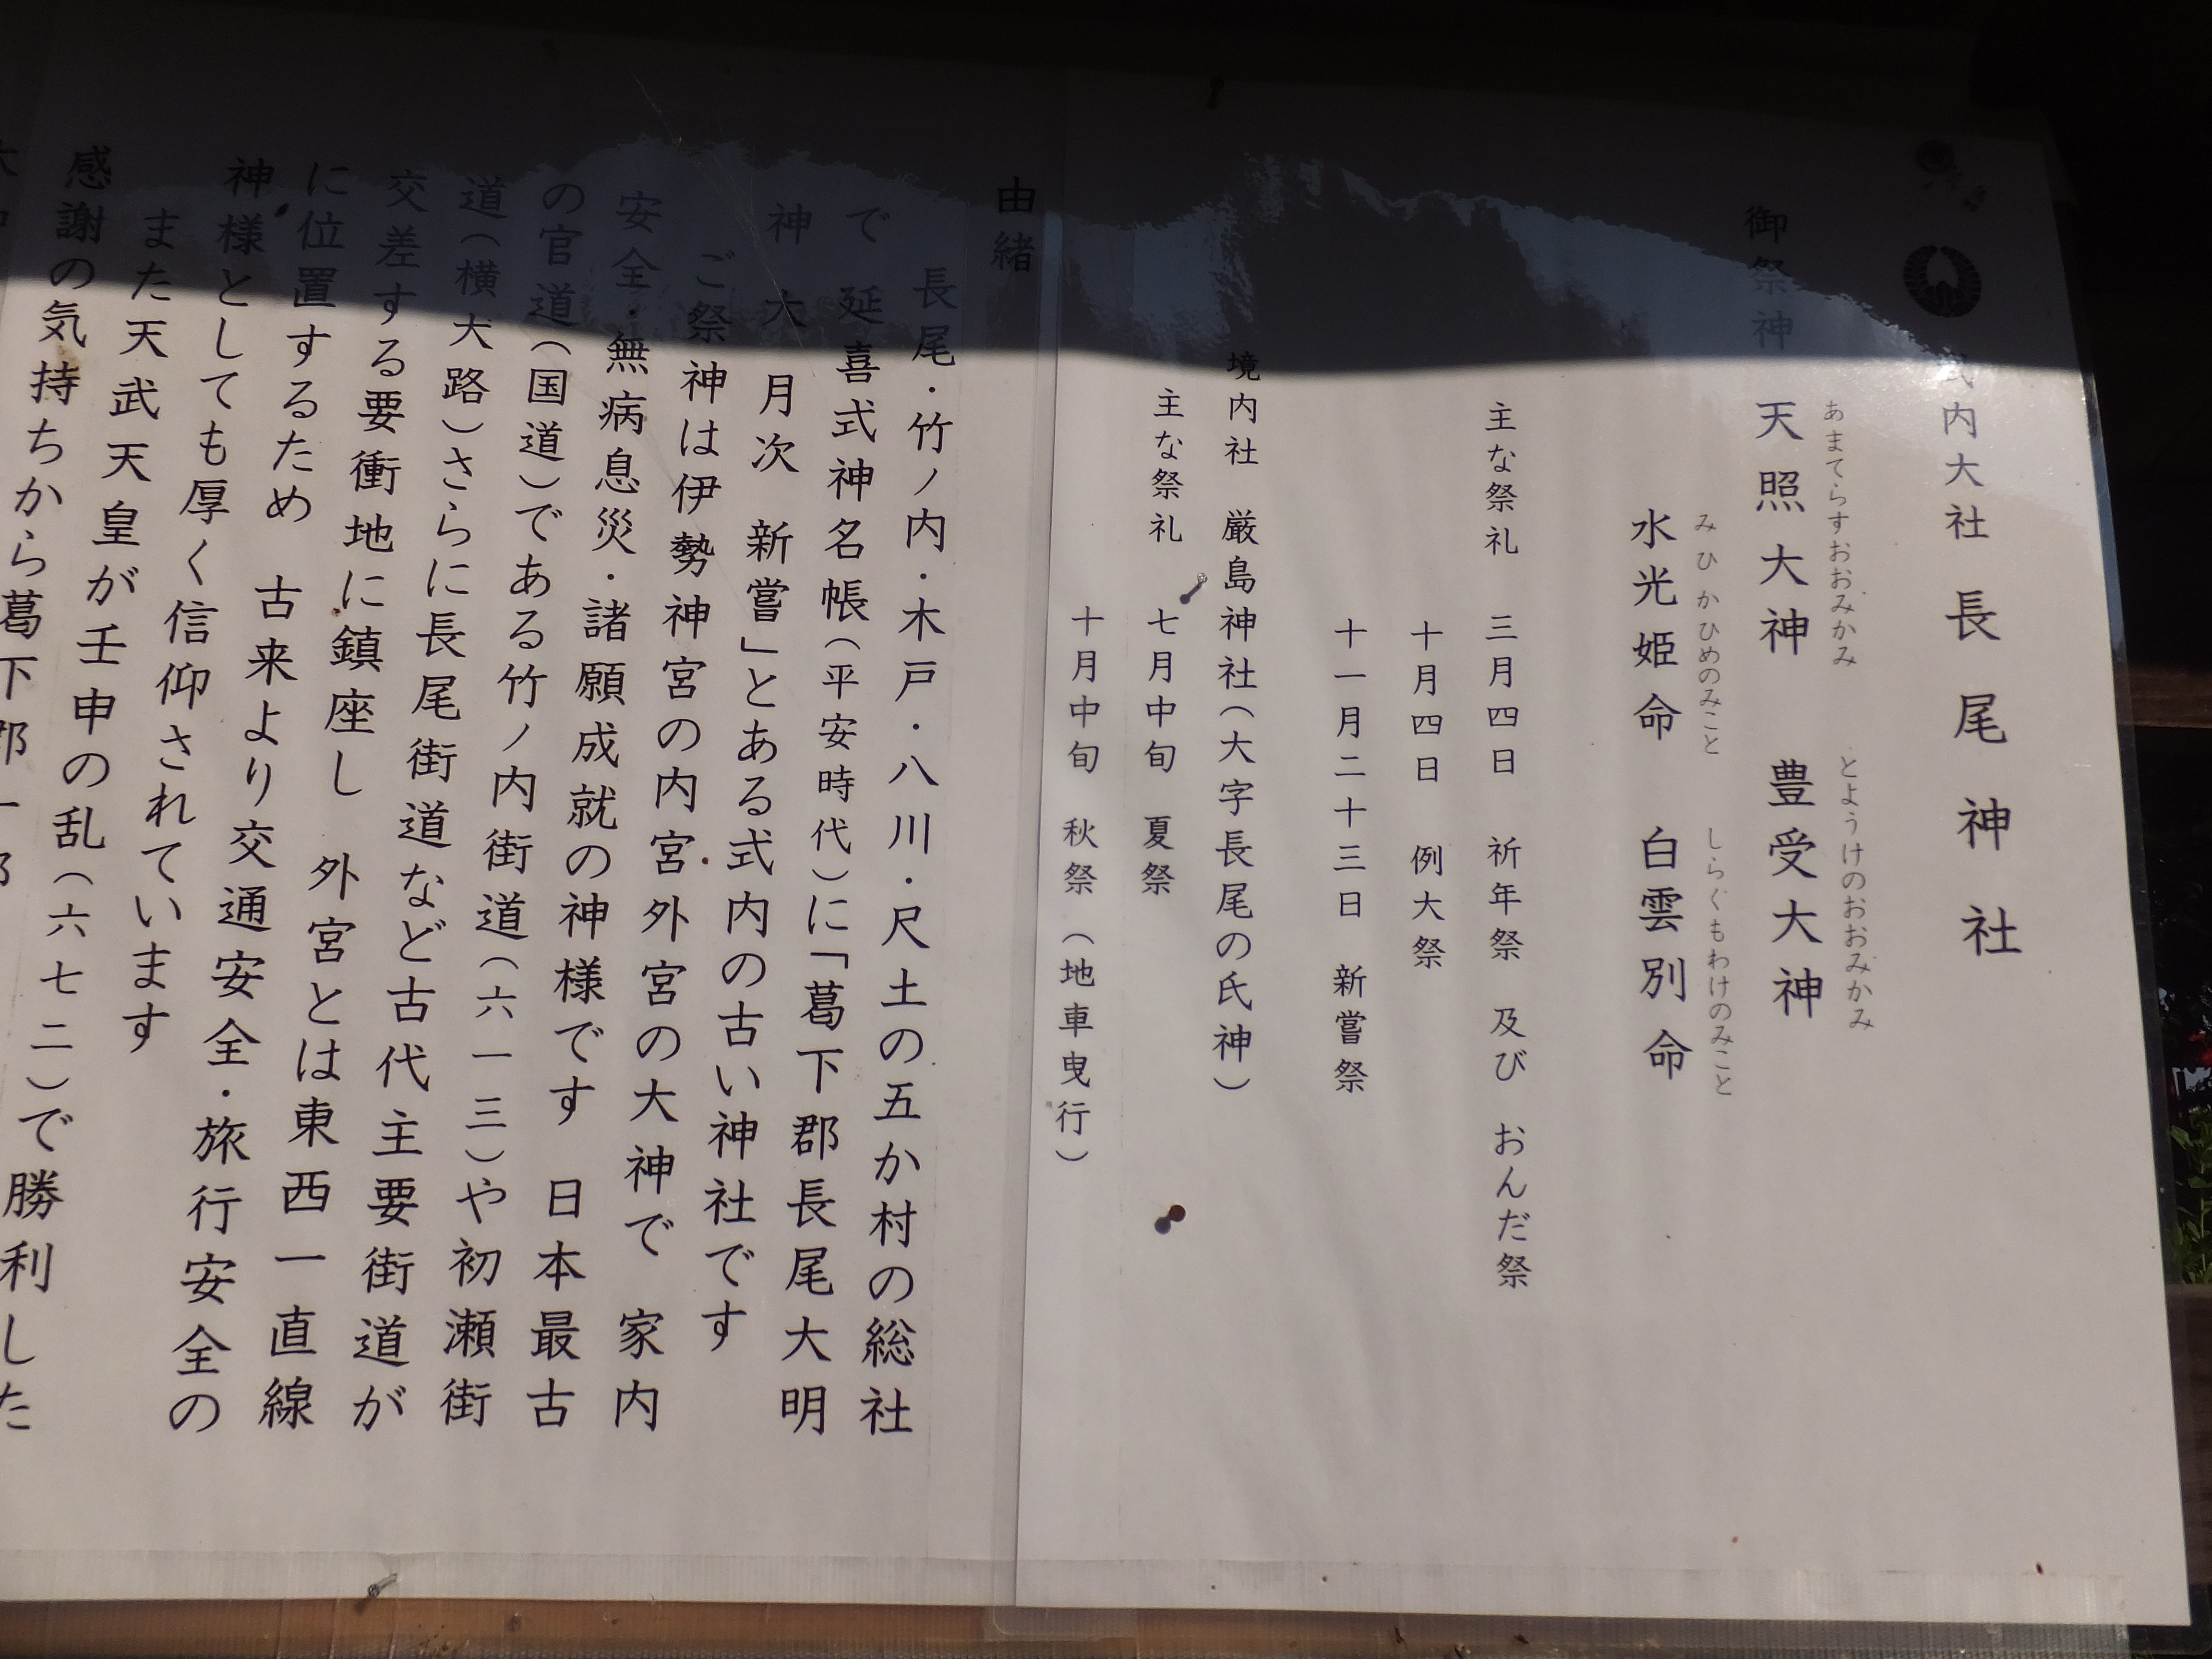 式内大社 長尾神社
御祭神
あまてらすおおみかみ とようけのおおみかみ
天照大神 豊受大神
みひかひめのみこと しらくもわけのみこと
水光姫命 白雲別命
主な祭礼 三月四日 祈年祭 及び おんだ祭
十月四日 例大祭
十一月二十三日 新嘗祭
境内社 厳島神社(大字長尾の氏神)
主な祭礼 七月中旬 夏祭
十月中旬 秋祭(地車曳行)
由緒
長尾・竹ノ内・木戸・八川・尺土の五か村の総社
で 延喜式神名帳(平安時代)に「葛下郡長尾大明
神 大 月次 新嘗」とある式内の古い神社です
ご祭神は伊勢神宮の内宮外宮の大神で 家内
安全・無病息災・諸願成就の神様です 日本最古
の官道(国道)である竹ノ内街道(六一三)や初瀬街
道(横大路)さらに長尾街道など古代主要街道が
交差する要衝地に鎮座し 外宮とは東西一直線
に位置するため 古来より交通安全・旅行安全の
神様としても厚く信仰されています
また天武天皇が壬申の乱(六七二)で勝利した
感謝の気持ちから葛下郡一